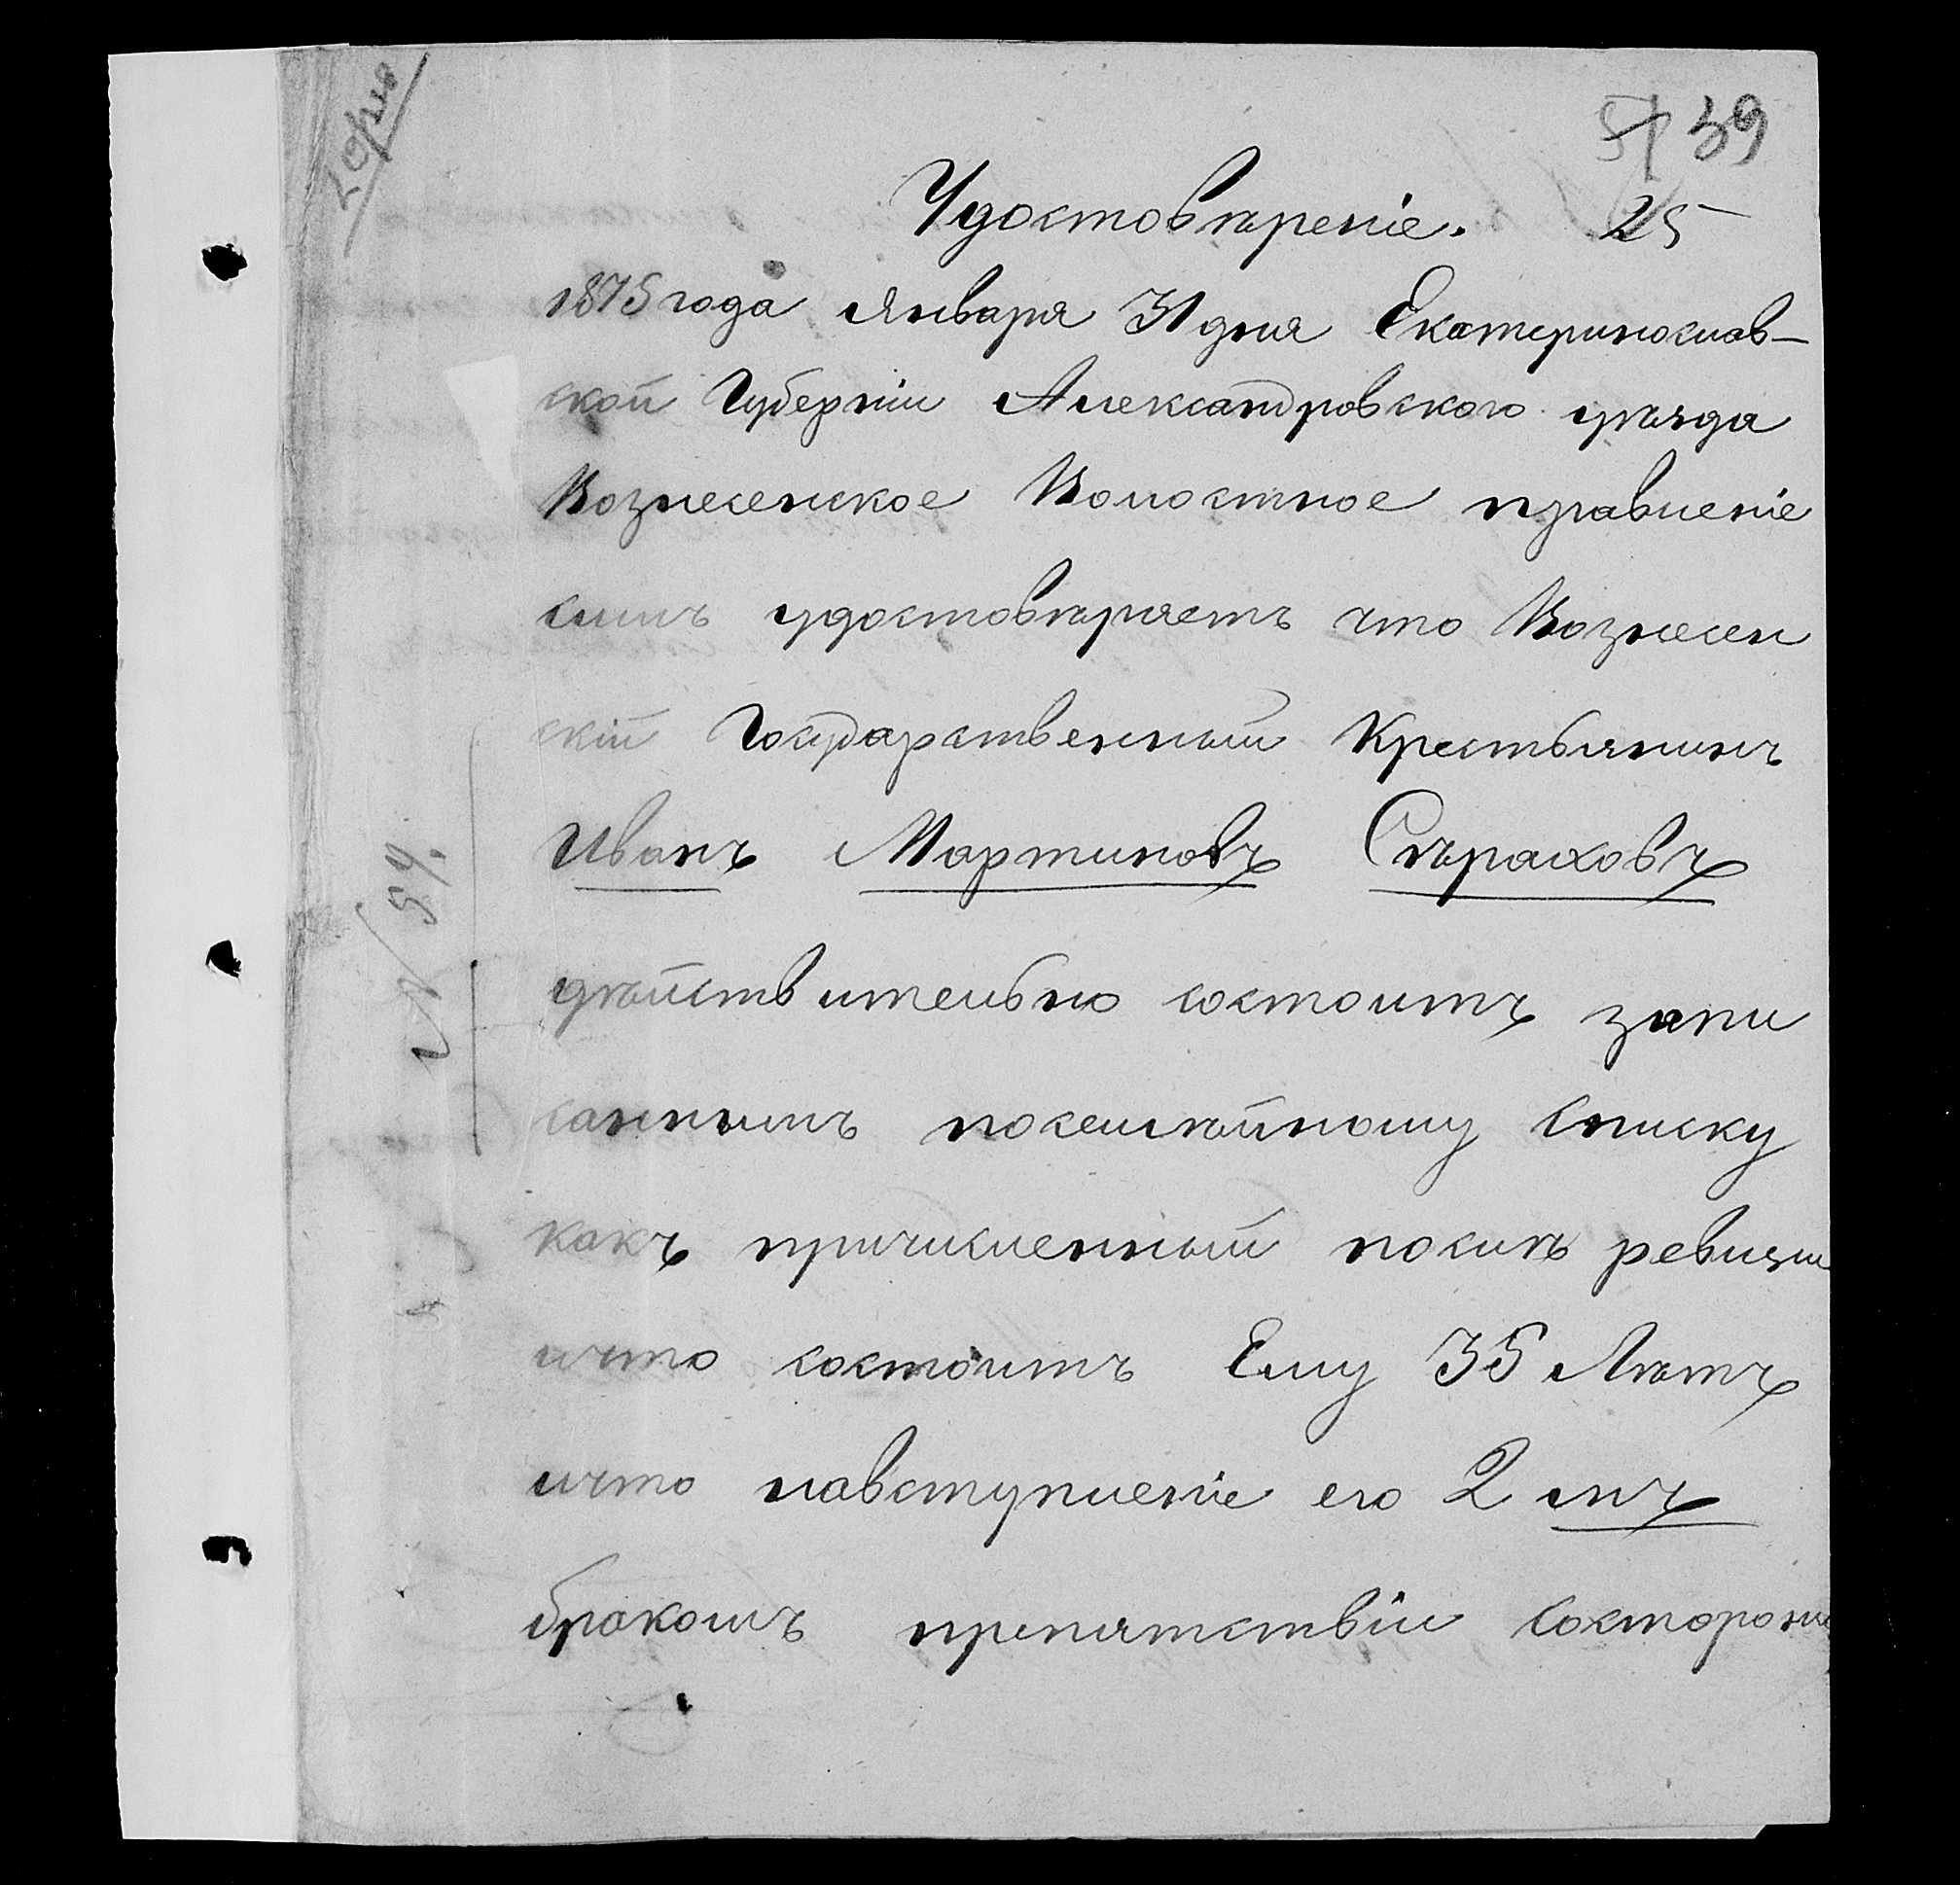 39
25
Удостовѣреніе.
1875 года Января 31 дня Екатеринослав-
ской Губерніи Александровского уѣзда
Вознесенское Волостное правленіе
симъ удостовѣряетъ что Вознесен
скій Государственный Крестьянинъ
Иванъ Мартиновъ Сѣраховъ
дѣйствительно состоитъ запи
саннымъ посемѣйному списку
какъ причисленный послѣ ревизіи
ичто состоитъ Ему 35 Лѣтъ
ичто навступленіе его 2 мъ
бракомъ препятствіи состороны
№ 59.